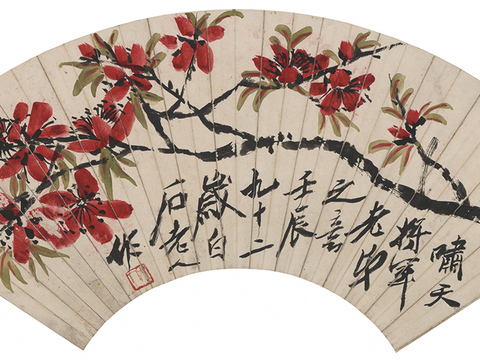 嘯天
將軍
老
之
壬辰
九十二
歲白
石老人
作